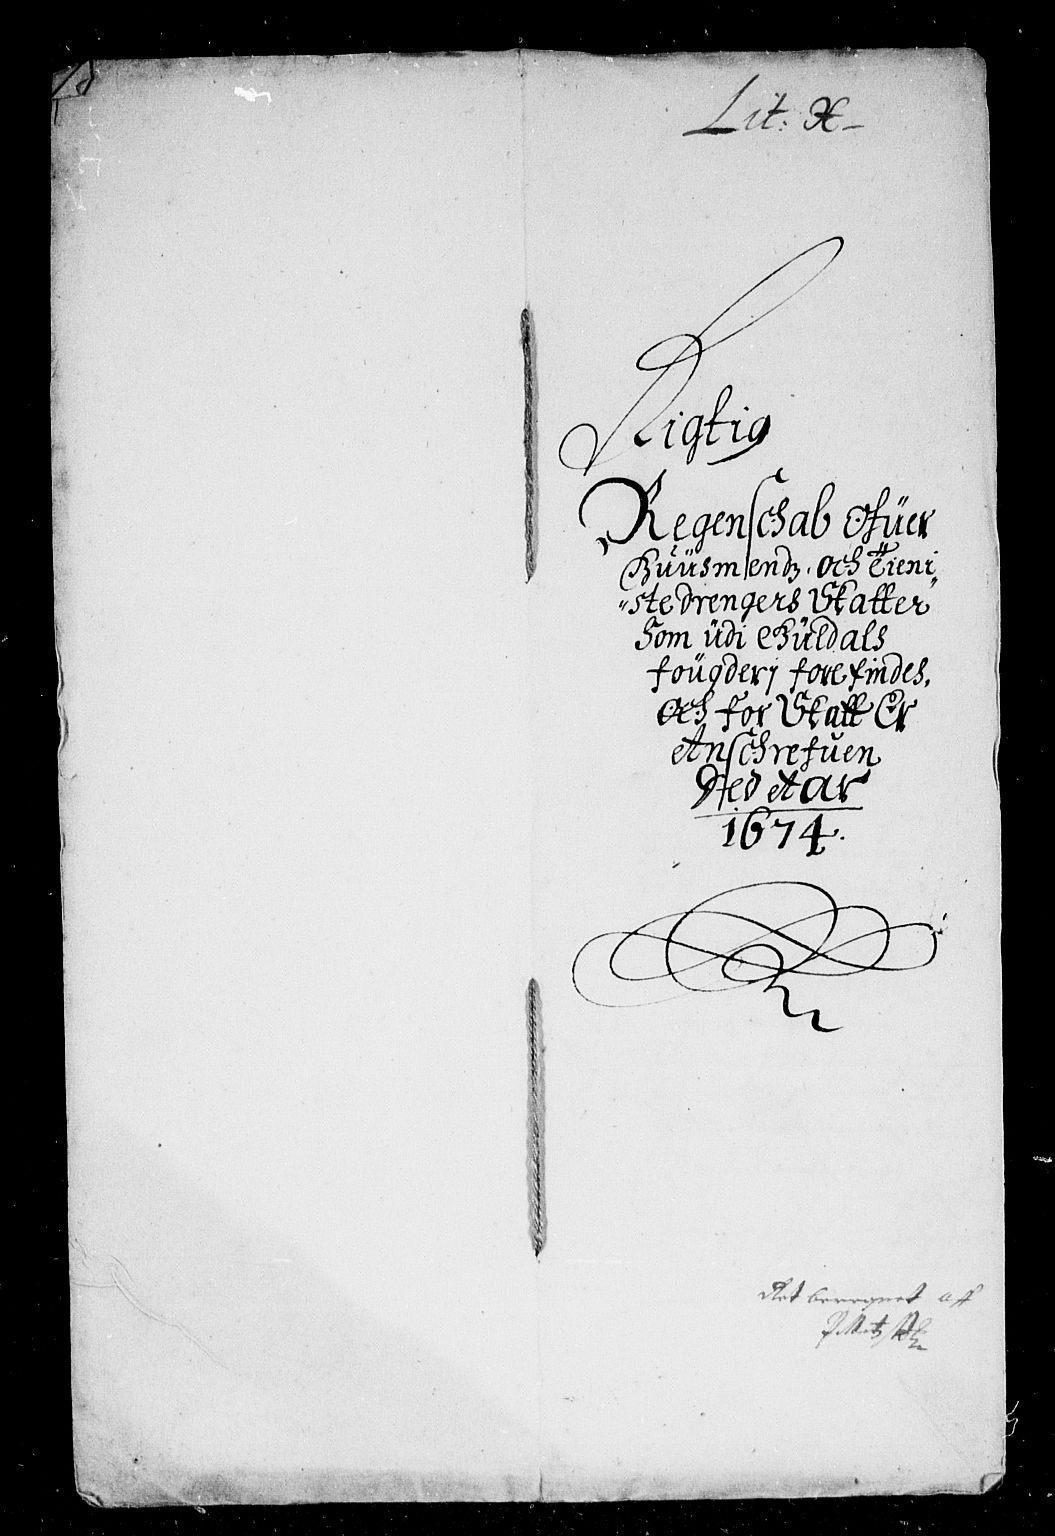 Lit: H
Rigtig
Regenschab ofuer
Huüsmendz och Tieni
ste drengers Skatter
Som üdi Güldals
foügderj forefindes,
Och for Skatt Er
Anschrefuen
Ded Aar
1674.
Ret beregnet aff